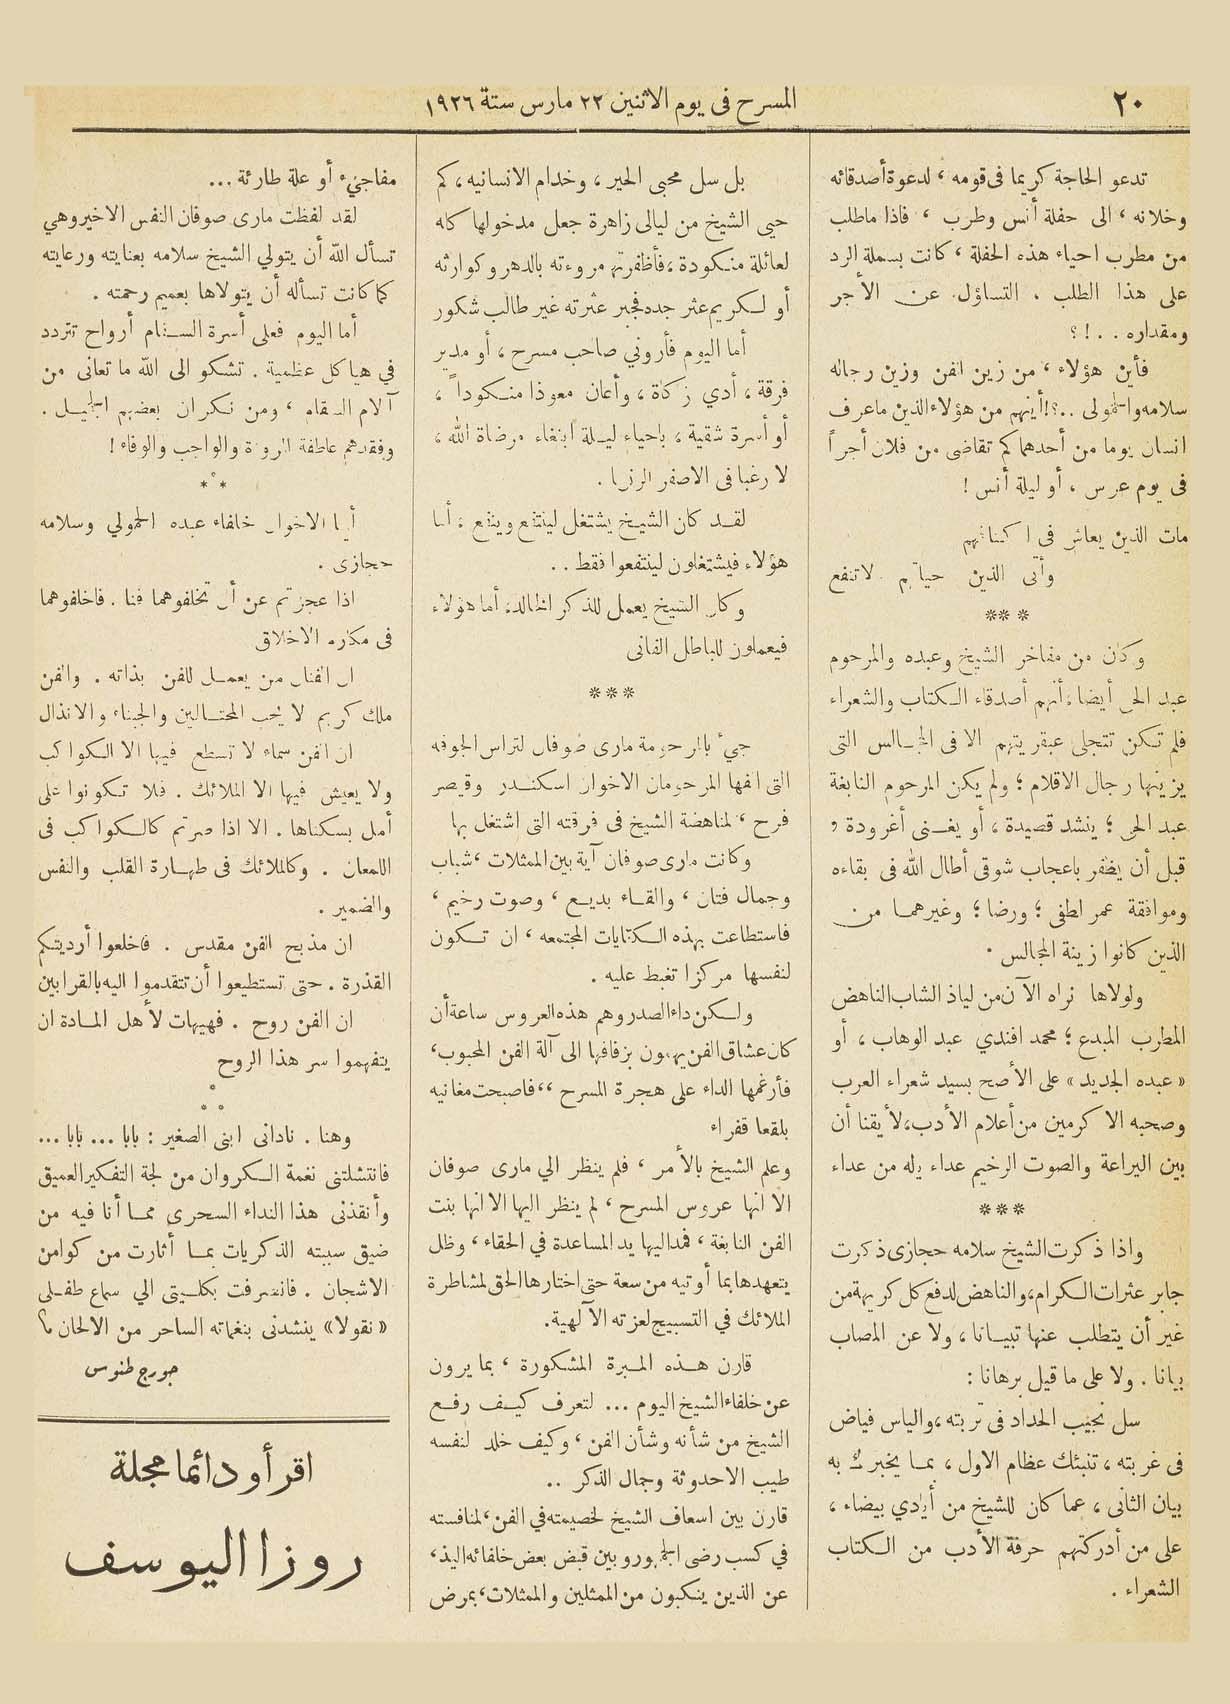 ٢٠
المسرح فى يوم الاثنين ٢٢ مارس سنة ١٩٢٦
تدعو الحاجة كريما فى قومه ، لدعوة أصدقائه
وخلانه ، الى حفلة أنس وطرب ، فاذا ماطلب
من مطرب احياء هذه الحفلة ، كانت بسملة الرد
على هذا الطلب . التساؤل عن الأجر
ومقداره . . ! ؟
فأين هؤلاء ، من زين الفن وزين رجاله
سلامه والحمولى ..؟! أيهم من هؤلاء الذين ماعرف
انسان يوما من أحدهما كم تقاضى من فلان أجراً
فى يوم عرس ، أو ليلة أنس !
مات الذين يعاش فى اكنافهم
وأتى الذين حياتهم لاتنفع
***
وكان من مفاخر الشيخ وعبده والمرحوم
عبد الحى أيضا ، أنهم أصدقاء الكتاب والشعراء
فلم تكن تتجلى عبقريتهم الا فى المجالس التى
يزينها رجال الاقلام ؛ ولم يكن المرحوم النابغة
عبد الحى ؛ ينشد قصيدة ، أو يغنى أغرودة ,
قبل أن يظفر باعجاب شوقى أطال الله فى بقاءه
وموافقة عمر لطفى ؛ ورضا ؛ وغيرهما من
الذين كانوا زينة المجالس .
ولولاها نراه الآن من لياذ الشاب الناهض
المطرب المبدع ؛ محمد افندي عبد الوهاب ، أو
« عبده الجديد » على الأصح بسيد شعراء العرب
وصحبه الاكرمين من أعلام الأدب، لأيقنا أن
بين اليراعة والصوت الرخيم عداء يله من عداء
***
واذا ذكرت الشيخ سلامه حجازى ذكرت
جابر عثرات الكرام، والناهض لدفع كل كريهة من
غير أن يتطلب عنها تبيانا ، ولا عن المصاب
بيانا . ولا على ما قيل برهانا :
سل نجيب الحداد فى تربته ، والياس فياض
فى غربته ، تنبئك عظام الاول ، بما يخبرك به
بيان الثانى ، عما كان للشيخ من أيادي بيضاء ،
على من أدركتهم حرفة الأدب من الكتاب
الشعراء .
بل سل محبى الخير ، وخدام الانسانيه ، كم
حيى الشيخ من ليالى زاهرة جعل مدخولها كله
لعائلة منكودة ، فأظفرتهم مروءته بالدهر وكوارثه
أو لكريم عثر جده فجبر عثرته غير طالب شكور
أما اليوم فأروني صاحب مسرح ، أو مدير
فرقة ، أدي زكاة ، وأعان معوذا منكوداً ،
أو أسرة شقية ، باحياء ليلة ابتغاء مرضاة الله ،
لا رغبا فى الاصفر الرنان .
لقد كان الشيخ يشتغل لينتفع وينفع ، أما
هؤلاء فيشتغلون لينتفعوا فقط . .
وكان الشيخ يعمل للذكر الخالد، أما هؤلاء
فيعملون للباطل الفانى
***
جيء بالمرحومة مارى صوفان لتراس الجوقه
التى الفها المرحومان الاخوان اسكندر وقيصر
فرح ، لمناهضة الشيخ فى فرقته التى اشتغل بها
وكانت مارى صوفان آية بين الممثلات ، شباب
وجمال فتان ، والقاء بديع ، وصوت رخيم ،
فاستطاعت بهذه الكفايات المجتمعه ، ان تكون
لنفسها مركزا تغبط عليه .
ولكن داء الصدر وهم هذه العروس ساعة أن
كان عشاق الفن يهمون بزفافها الى آلة الفن المحبوب ،
فأرغمها الداء على هجرة المسرح ،، فاصبحت مغانيه
بلقعا قفراء
وعلم الشيخ بالأمر ، فلم ينظر الي مارى صوفان
الا انها عروس المسرح ، لم ينظر اليها الا انها بنت
الفن النابغة ، فمد اليها يد المساعدة في الخفاء ، وظل
يتعهدها بما أوتيه من سعة حتى اختارها الحق لمشاطرة
الملائك في التسبيح لعزته الآلهية.
قارن هذه المبرة المشكورة ، بما يرون
عن خلفاء الشيخ اليوم ... لتعرف كيف رفع
الشيخ من شأنه وشأن الفن ، وكيف خلد لنفسه
طيب الاحدوثة وجمال الذكر ..
قارن بين اسعاف الشيخ لخصيمته في الفن ، لمنافسته
في كسب رضى الجمهور وبين قبض بعض خلفائه اليد،
عن الذين ينكبون من الممثلين والممثلات ، بمرض
مفاجىء أو علة طارئة ...
لقد لفظت مارى صوفان النفس الاخير وهي
تسأل الله أن يتولي الشيخ سلامه بعنايته ورعايته
كما كانت تسأله أن يتولاها بعميم رحمته .
أما اليوم فعلى أسرة السقام أرواح تتردد
في هياكل عظمية . تشكو الى الله ما تعانى من
آلام السقام ، ومن نكران بعضهم الجميل .
وفقدهم عاطفة المروءة والواجب والوفاء !
***
أيها الاخوان خلفاء عبده الحمولي وسلامه
حجازى .
اذا عجزتم عن أن تخلفوهما فنا . فاخلفوهما
فى مكارم الاخلاق
ان الفنان من يعمل للفن بذاته . والفن
ملك كريم لا يحب المحتالين والجبناء والانذال
ان الفن سماء لا تسطع فيها الا الكواكب
ولا يعيش فيها الا الملائك . فلا تكونوا على
أمل بسكناها . الا اذا صرتم كالكواكب فى
اللمعان . وكالملائك فى طهارة القلب والنفس
والضمير .
ان مذبح الفن مقدس . فاخلعوا أرديتكم
القذرة . حتى تستطيعوا أن تتقدموا اليه بالقرابين
ان الفن روح . فهيهات لأهل المادة ان
يتفهموا سر هذا الروح
***
وهنا . نادانى ابنى الصغير : بابا ... بابا ...
فانتشلتنى نغمة الكروان من لجة التفكير العميق
وأنقذنى هذا النداء السحرى مما أنا فيه من
ضيق سببته الذكريات بما أثارت من كوامن
الاشجان . فانصرفت بكليتى الي سماع طفلى
« نقولا » ينشدنى بنغماته الساحر من الالحان ؟
جورج طنوس
اقرأو دائما مجلة
روزا اليوسف